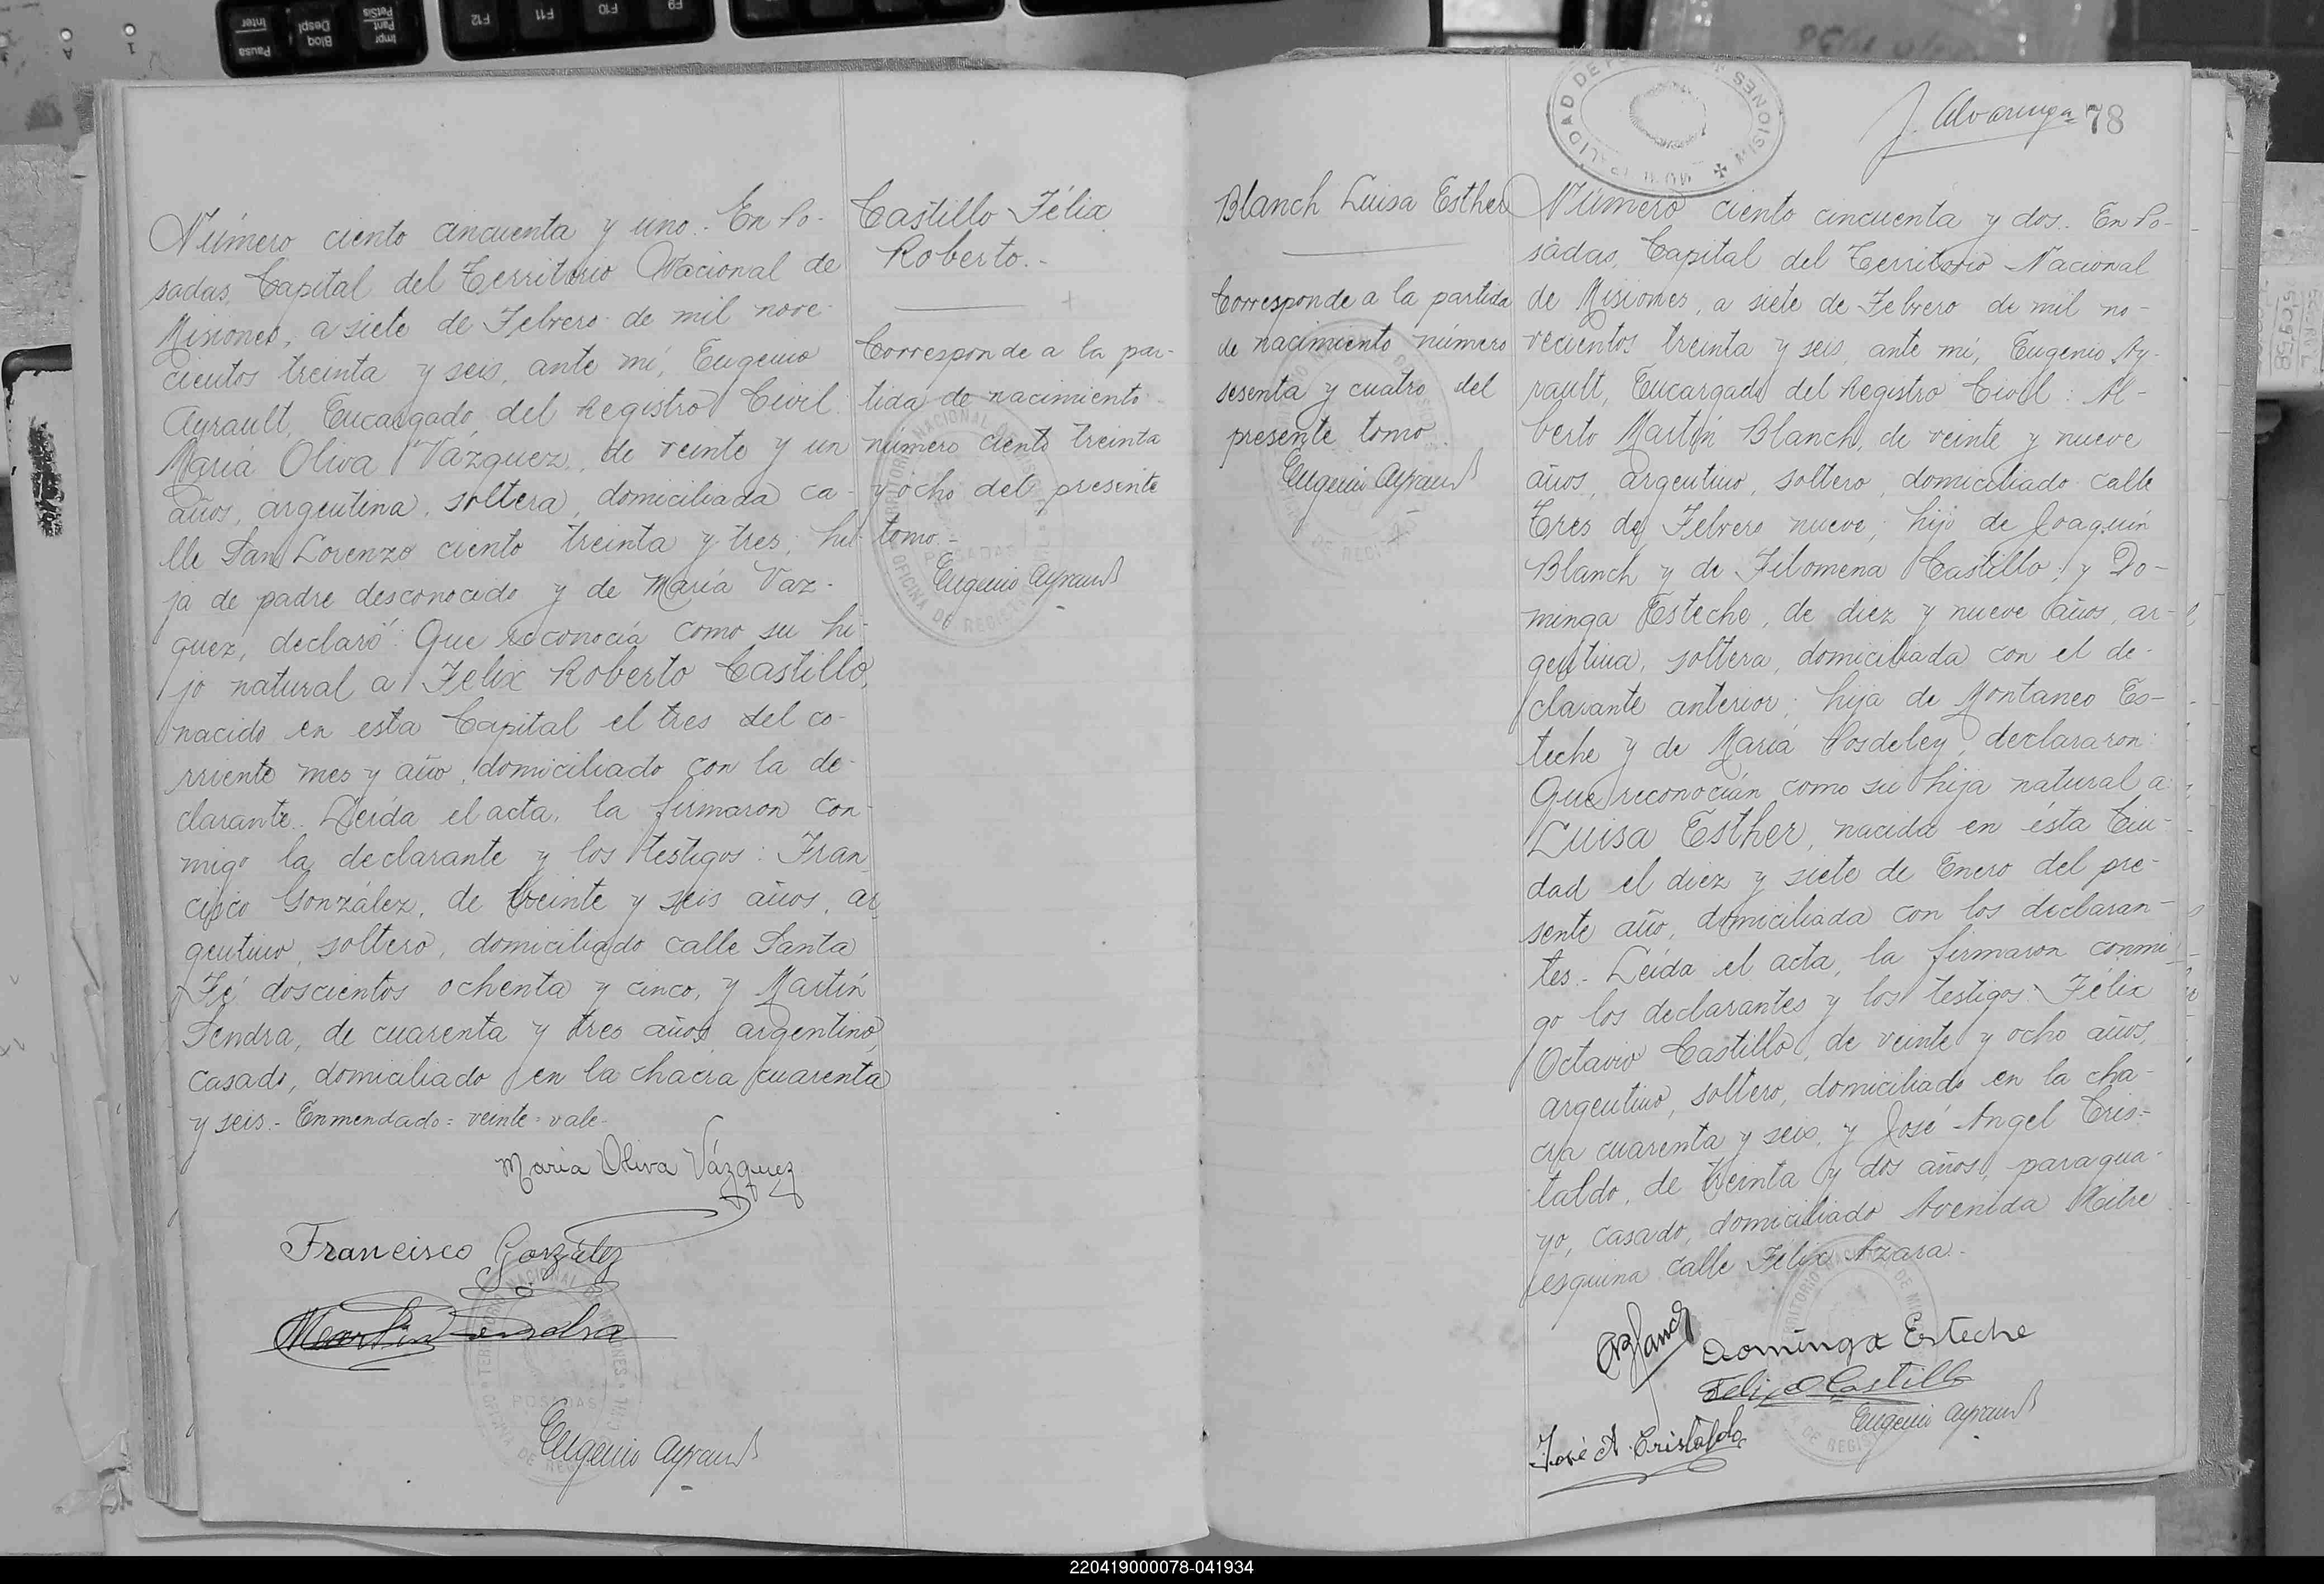 Número ciento cincuenta y uno.- En Po-
sadas, Capital del Territorio Nacional de
Misiones, a siete de Febrero de mil nove-
cientos treinta y seis, ante mí, Eugenio
Ayrault, Encargado del Registro Civil:
María Oliva Vázquez, de veinte y un
años, argentina, soltera, domiciliada ca-
lle San Lorenzo ciento treinta y tres; hi-
ja de padre desconocido y de María Vaz-
quez, declaró: Que reconocía como su hi-
jo natural a Felix Roberto Castillo,
nacido en esta Capital el tres del co-
rriente mes y año, domiciliado con la de-
clarante. Leída el acta, la firmaron con-
migo la declarante y los testigos: Fran-
cisco González, de veinte y seis años, ar
gentino, soltero, domiciliado calle Santa
Fé doscientos ochenta y cinco, y Martín
Sendra, de cuarenta y tres años argentino,
casado, domiciliado en la chacra cuarenta
y seis.- Enmendado= veinte= vale-
María Oliva Vázquez
Francisco González
Martín Sendra
Eugenio Ayrault
Castillo Félix
Roberto.-
Corresponde a la par-
tida de nacimiento
número ciento treinta
y ocho del presente
tomo.-
Eugenio Ayrault
J. Alvarenga 78
Blanch Luisa Esther
Corresponde a la partida
de nacimiento número
sesenta y cuatro del
presente tomo.
Eugenio Ayrault
Número ciento cincuenta y dos.- En Po-
sadas, Capital del Territorio Nacional
de Misiones, a siete de Febrero de mil no-
vecientos treinta y seis, ante mí, Eugenio Ay-
rault, Encargado del Registro Civil: Al-
berto Martín Blanch, de veinte y nueve
años, argentino, soltero, domiciliado calle
Tres de Febrero nueve; hijo de Joaquín
Blanch y de Filomena Castillo; y Do-
minga Esteche, de diez y nueve años, ar-
gentina, soltera, domiciliada con el de-
clarante anterior; hija de Montaneo Es-
teche y de María Posdeley, declararon:
Que reconocían como su hija natural a
Luisa Esther, nacida en ésta Ciu-
dad el diez y siete de Enero del pre-
sente año, domiciliada con los declaran-
tes.- Leída el acta, la firmaron conmi-
go los declarantes y los testigos: Félix
Octavio Castillo, de veinte y ocho años,
argentino, soltero, domiciliado en la cha-
cra cuarenta y seis, y José Angel Cris-
taldo, de treinta y dos años, paragua-
yo, casado, domiciliado Avenida Mitre
esquina calle Felix Azara.-
ABlanch
Dominga Esteche
Felix O Castillo
Eugenio Ayrault
José A. Cristaldo
220419000078-041934